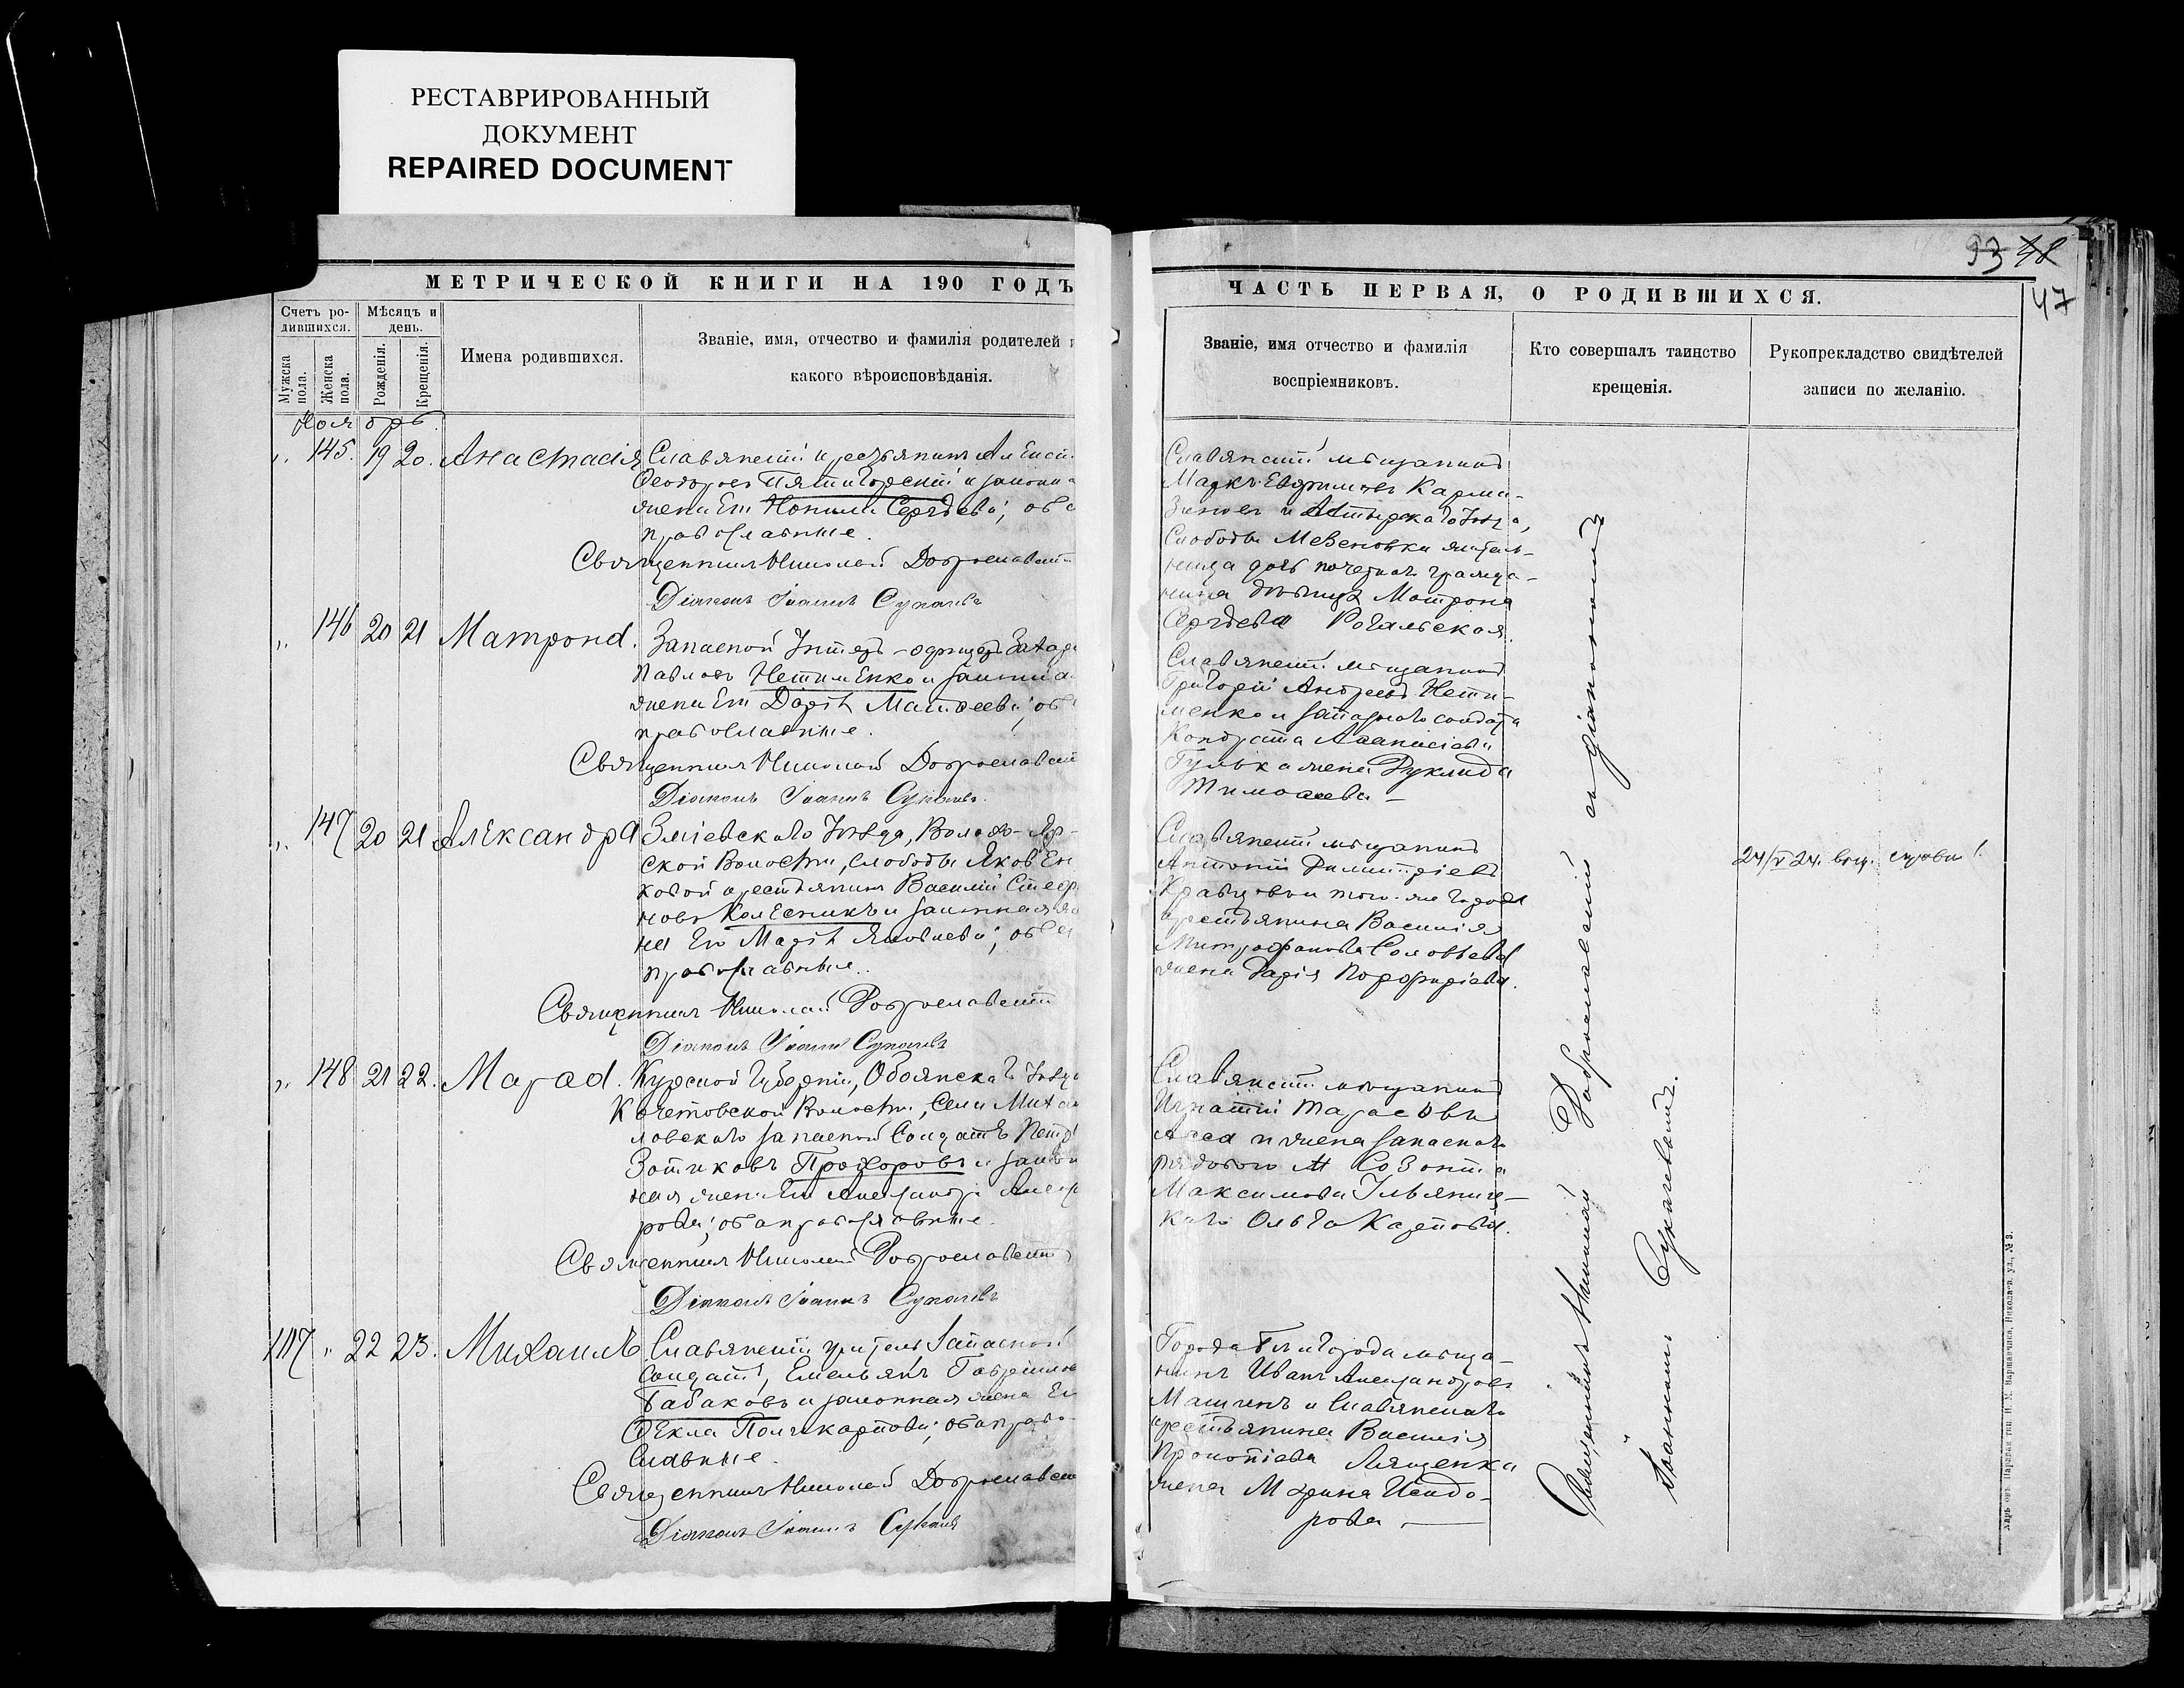 РЕСТАВРИРОВАННЫЙ
ДОКУМЕНТ
REPAIRED DOCUMENT
МЕТРИЧЕСКОЙ КНИГИ НА 190 ГОДЪ
Счетъ ро-
дившихся.
Мѣсяцъ и
день.
Мужска
пола.
Женска
пола.
Рожденія.
Крещенія.
Имена родившихся.
Званіе, имя, отчество и фамилія родителей
какого вѣроисповѣданія.
Ноябрь
145. 19 20. Анастасія Славянскій крестьянинъ Алексѣй
Ѳеодоровъ Пятигорскій и законн
жена его Сергѣева; оба
православные.
Священникъ Николай Доброславскій
Діаконъ Іоаннъ Сукачевъ
146 20 21 Матрона. Запасной Унтеръ-офицеръ Захар
Павловъ Нетименко и законна
жена его Дарія Матѳеева; оба
православные.
Священникъ Николай Доброславскій
Діаконъ Іоаннъ Сукачевъ.
147 20 21 Александра Зміевскаго Уѣзда, Волохо-Яр-
ской Волости, слободы Яковен
ковой крестьянинъ Василій Стеф
новъ Колесникъ и законная же
на его Марія Яковлева; оба
православные.
Священникъ Николай Доброславскій
Діаконъ Іоаннъ Сукачевъ
148 21 22. Мара. Курской Губерніи, Обоянскаго Уѣзда
Кочетовской Волости, Села Михай
ловскаго запасной Солдатъ Петръ
Зотиковъ Прохоровъ и закон
ная жена его Александра Алекс
рова; оба православные.
Священникъ Николай Доброславскій
Діаконъ Іоаннъ Сукачевъ
117 22 23. Михаилъ Славянскій житель Запасной
Солдатъ, Емельянъ Гавриилов
Табаковъ и законная жена его
Ѳекла Поликарпова; оба право-
славные.
Священникъ Николай Доброславскій
Діаконъ Іоаннъ Сукачевъ
93 48
47
ЧАСТЬ ПЕРВАЯ, О РОДИВШИХСЯ.
Званіе, имя отчество и фамилія
воспріемниковъ.
Кто совершалъ таинство
крещенія.
Рукопрекладство свидѣтелей
записи по желанію.
Славянскій мѣщанинъ
Маркъ Евфимовъ Карма-
зиновъ и Ахтырскаго Уѣзда,
Слободы Мезеновки житель-
ница дочь почетнаго гражда-
нина дѣвица Матрона
Сергѣева Рогальская.
Славянскій мѣщанинъ
Григорій Андреевъ Нети-
менко и запаснаго солдата
Кондрата Аѳанасіева
Гулька жена
Тимоѳеева —
Славянскій мѣщанинъ
Антоній Димитріевъ
Кравцовъ и того-же города
крестьянина Василія
Митрофанова Соловьева
жена Дарія Порфиріева.
24/V 24.
Славянскій мѣщанинъ
Игнатій Тарасовъ
и жена запаснаго
рядового Созонта
Максимова
Ольга Карпова.
Города мѣща-
нинъ Иванъ Александровъ
Машинъ и Славянскаго
крестьянина Василія
Прокопіева Лященка
жена Марина Исидо-
рова —
Священникъ Николай Доброславскій съ діакономъ
Іоанномъ Сукачевымъ.